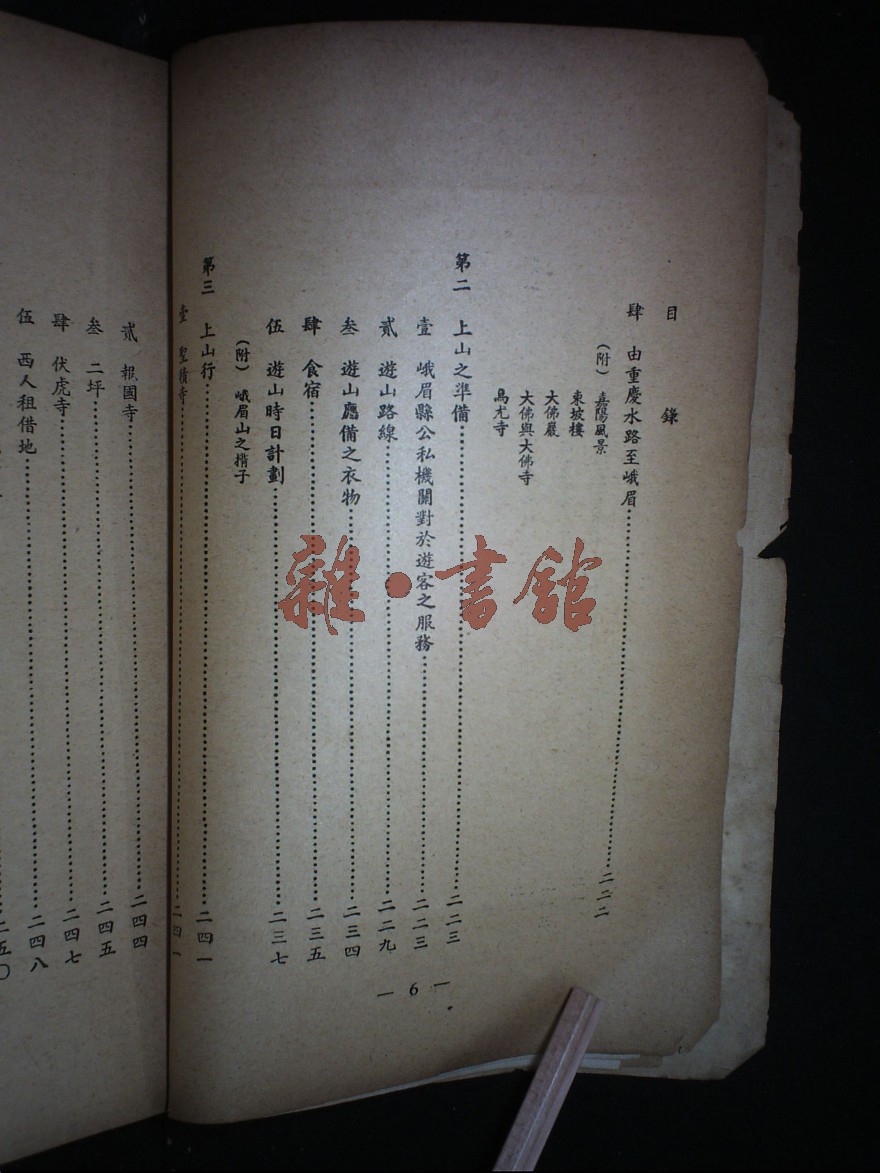 目錄
肆 由重慶水路至峨眉……二二二
（附） 嘉陽風景
東坡樓
大佛巖
大佛與大佛寺
烏尤寺
第二 上山之準備……二二三
壹 峨眉縣公私機關對於遊客之服務……二二三
貳 遊山路線……二二九
叁 遊山應備之衣物……二三四
肆 食宿……二三五
伍 遊山時日計劃……二三七
（附） 峨眉山之揹子
第三 上山行……二四一
壹 聖積寺……二四一
貳 報國寺……二四四
叁 二坪……二四五
肆 伏虎寺……二四七
伍 西人租借地……二四八
二五〇
— 6 —
雜·書館